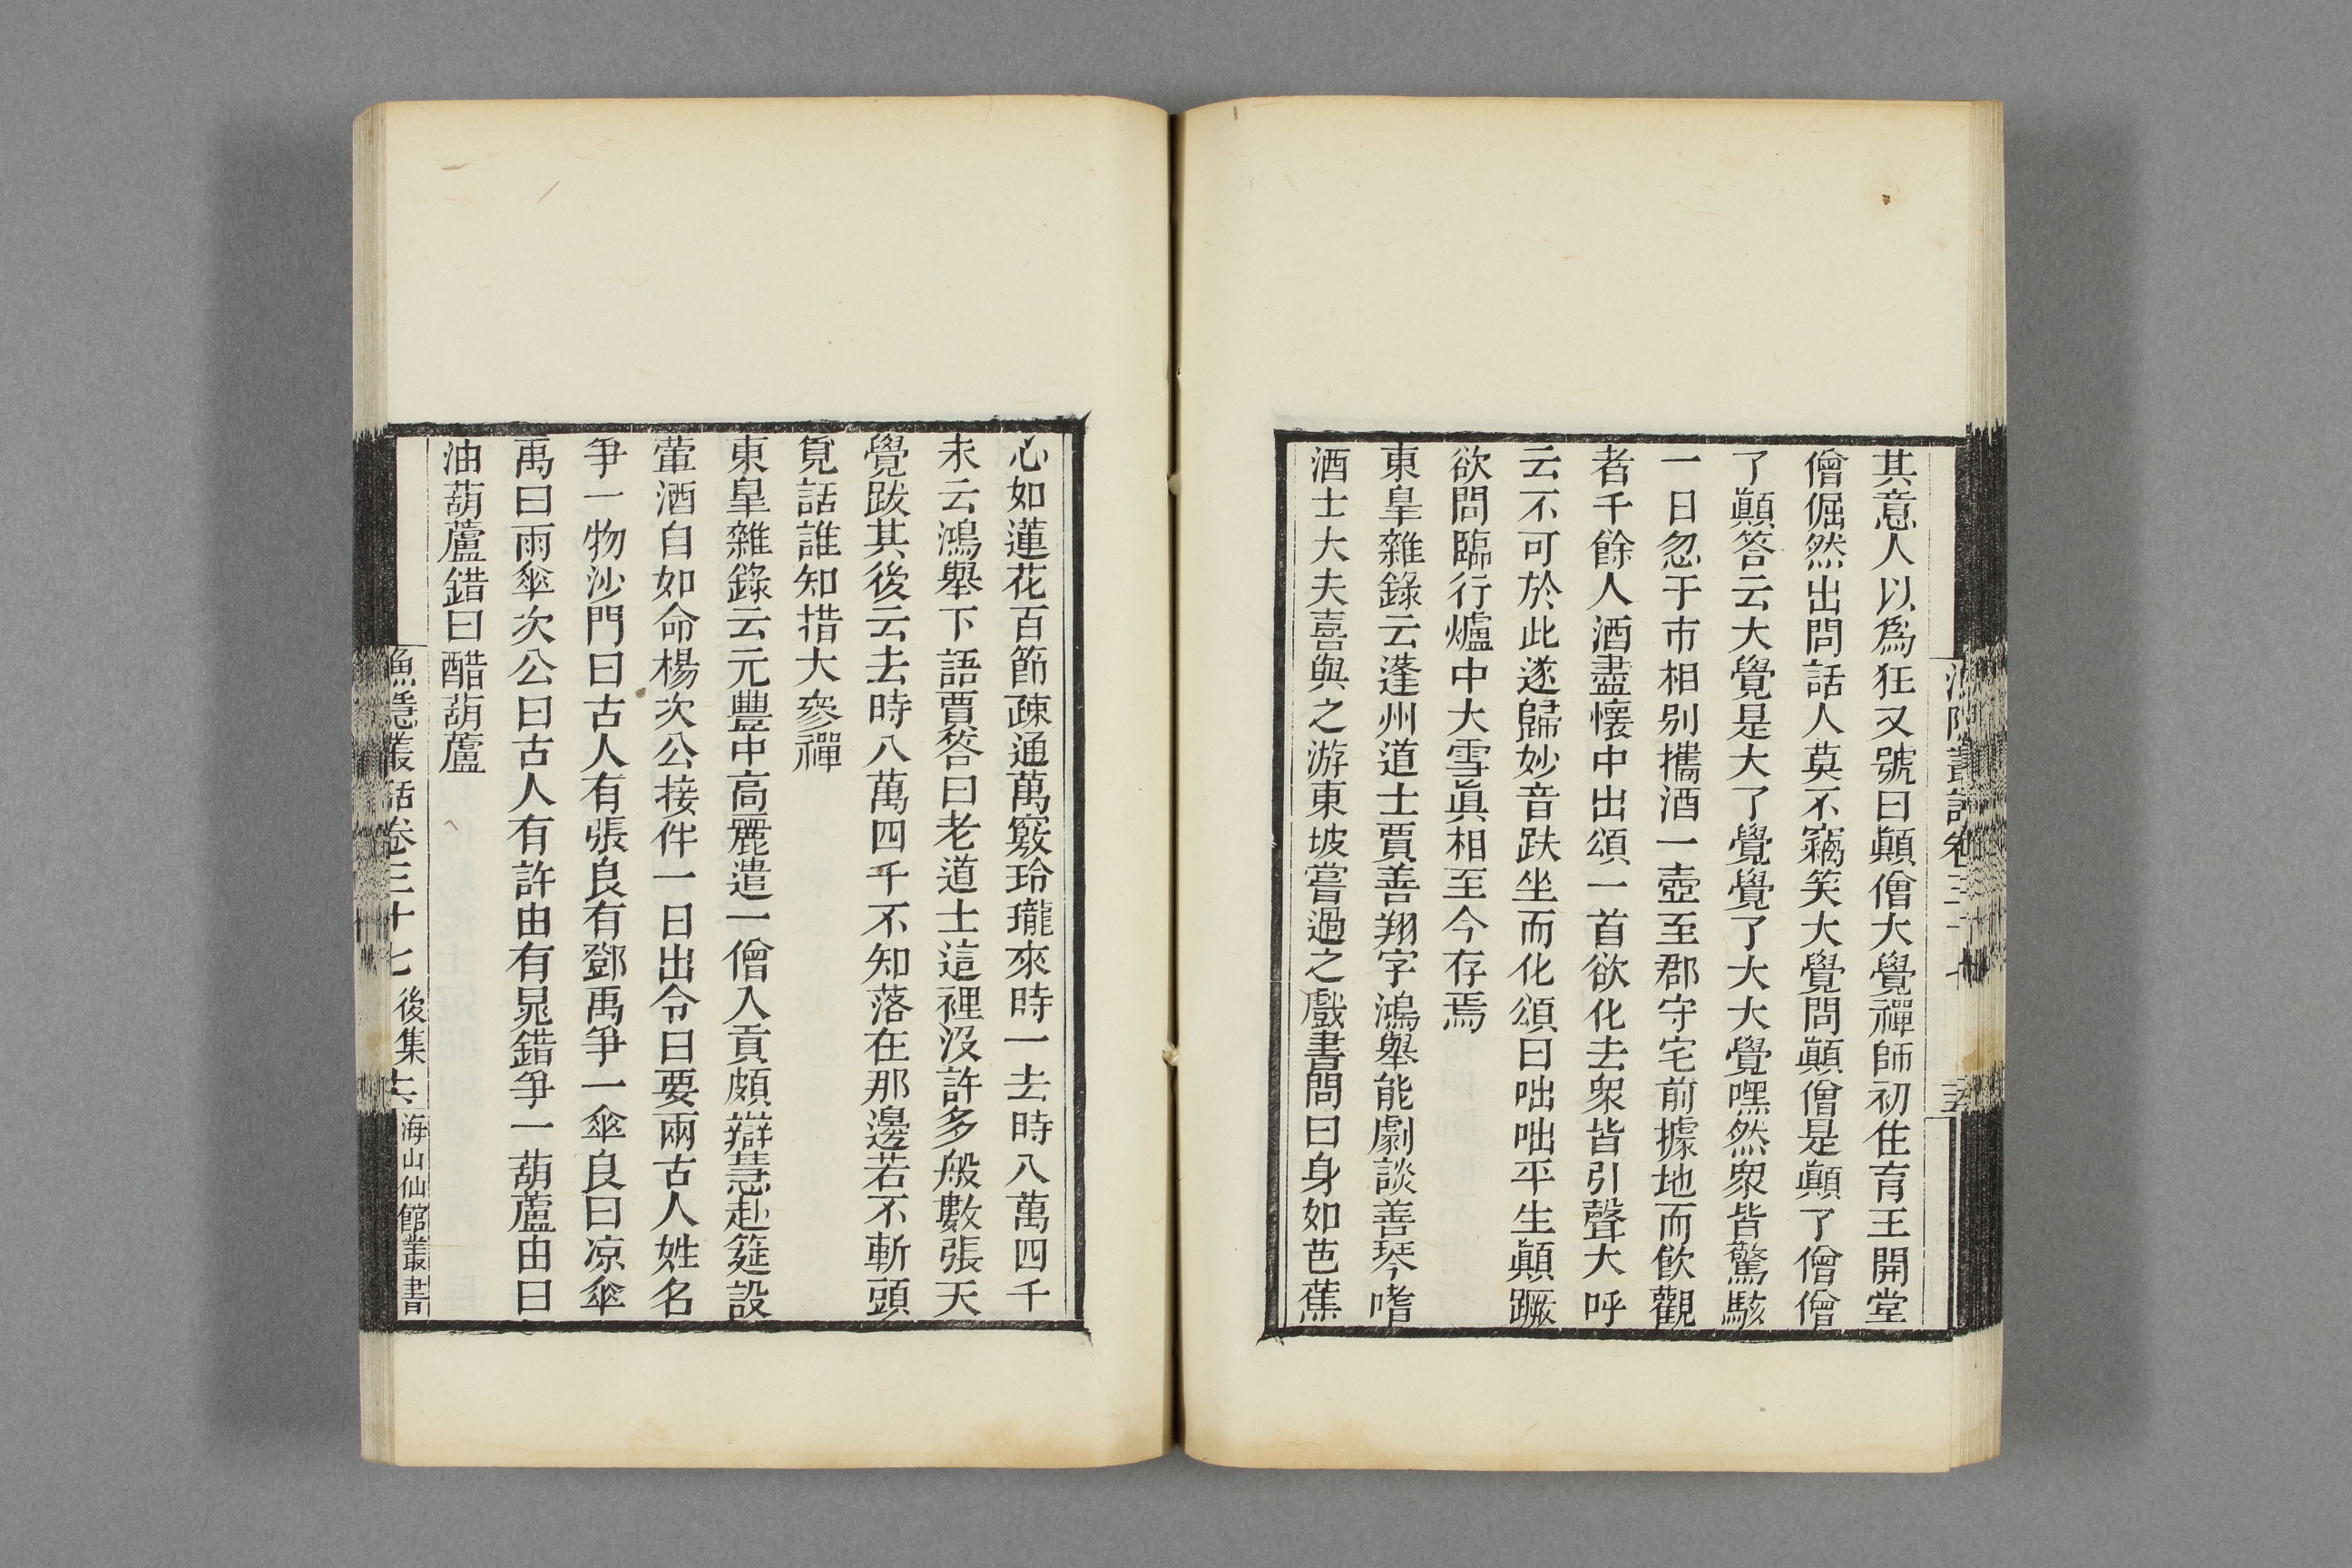 其意人以爲狂又號曰顚僧大覺禪師初住育王開堂
僧倔然出問話人莫不竊笑大覺問顚僧是顚了僧僧
了顚答云大覺是大了覺覺了大大覺嘿然衆皆驚駭
一日忽于市相别攜酒一壺至郡守宅前據地而飮觀
者千餘人酒盡懷中出頌一首欲化去衆皆引聲大呼
云不可於此遂歸妙音趺坐而化頌曰咄咄平生顚蹶
欲問臨行爐中大雪眞相至今存焉
東皐雜錄云蓬州道士賈善翔字鴻舉能劇談善琴嗜
酒士大夫喜與之游東坡嘗過之戲書問曰身如芭蕉
心如蓮花百節疎通萬竅玲瓏來時一去時八萬四千
末云鴻舉下語賈答曰老道士這裡沒許多般數張天
覺跋其後云去時八萬四千不知落在那邊若不斬頭
覓話誰知措大參禪
東皐雜錄云元豐中高麗遣一僧入貢頗辯慧赴筵設
葷酒自如命楊次公接伴一日出令曰要兩古人姓名
爭一物沙門曰古人有張良有鄧禹爭一傘良曰凉傘
禹曰雨傘次公曰古人有許由有晁錯爭一葫蘆由曰
油葫蘆錯曰醋葫蘆
漁隱叢話卷三十七 後集 海山仙館叢書